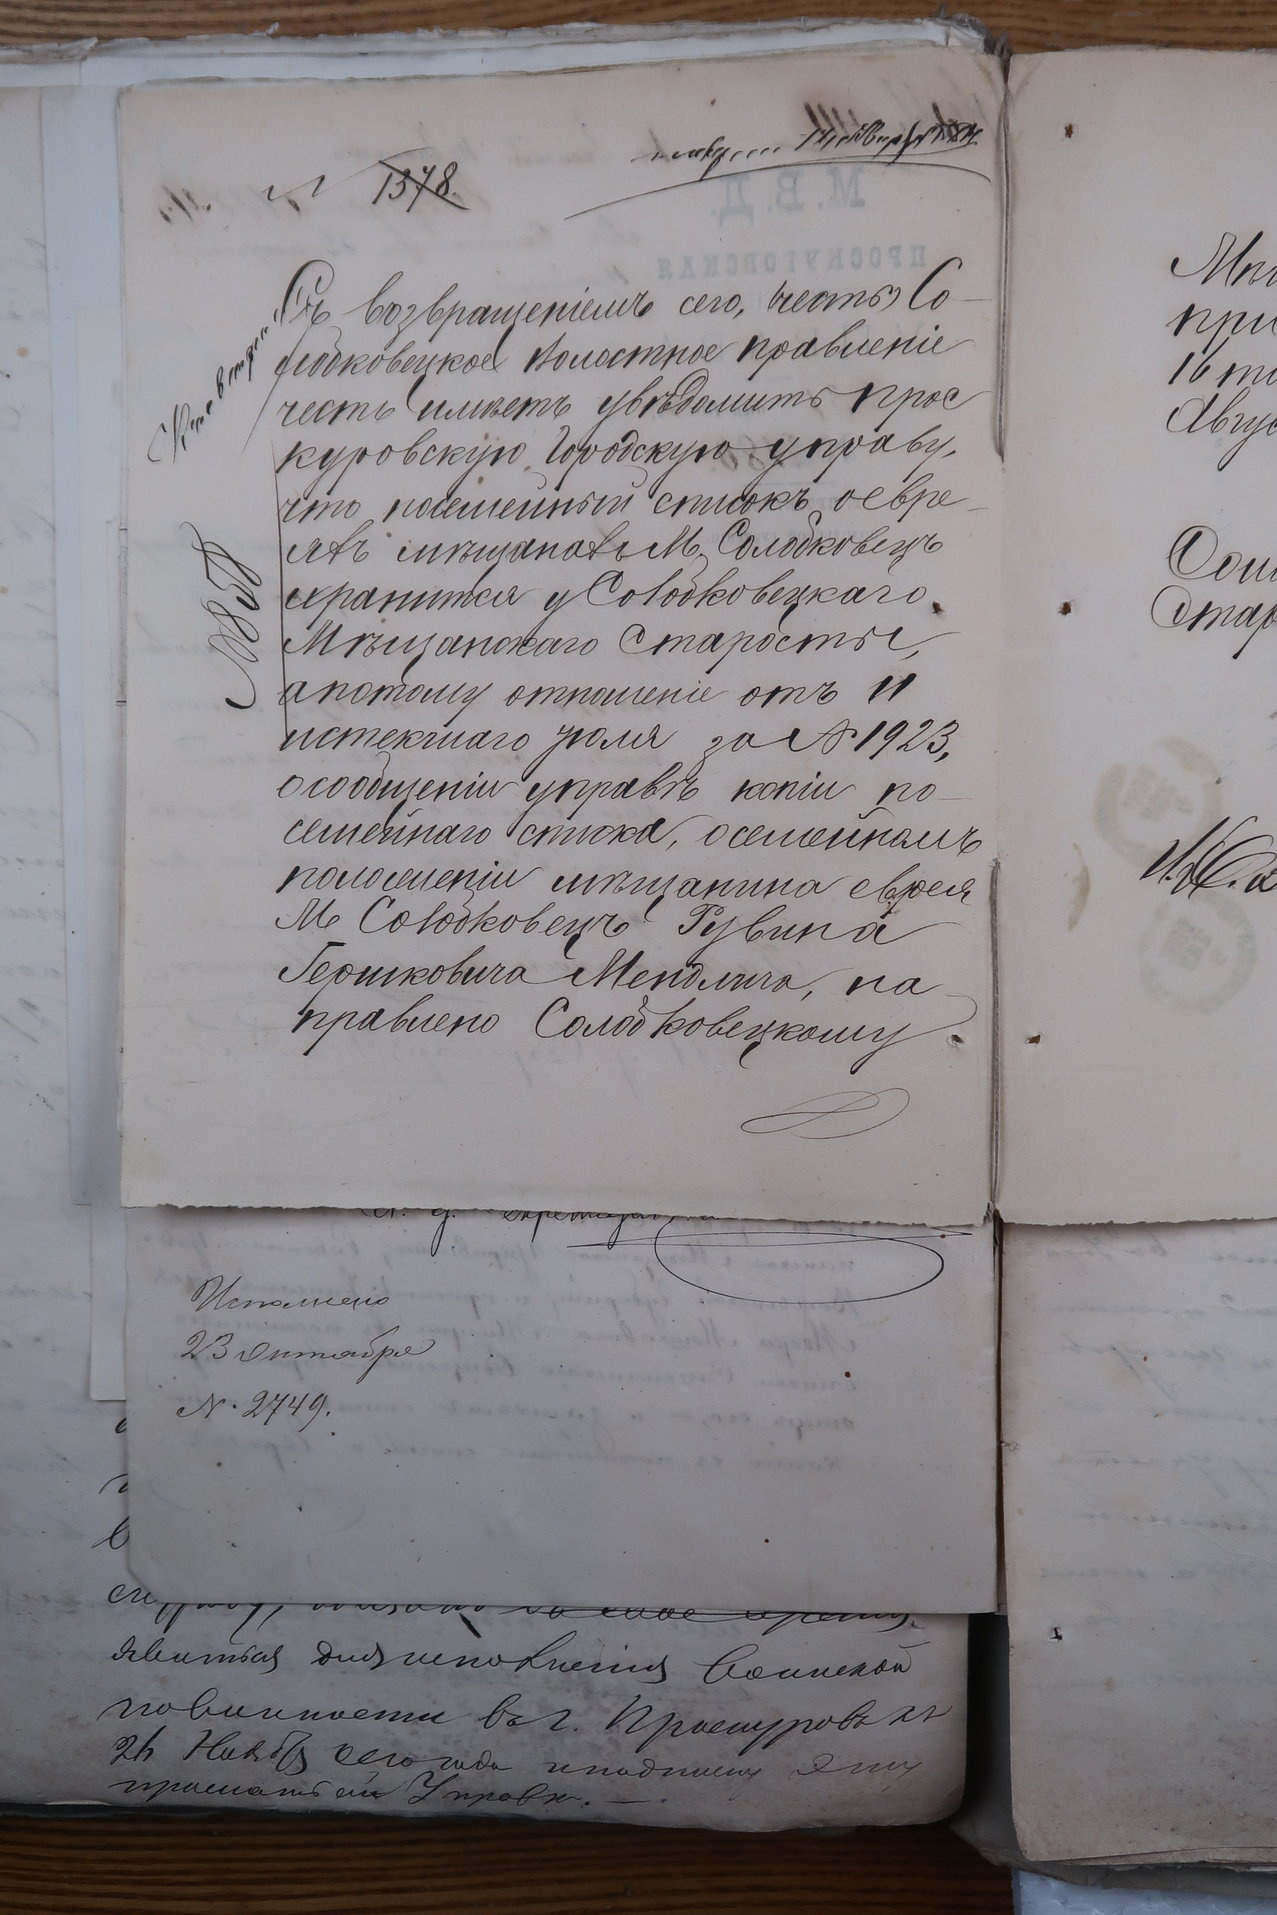 1378.
М. В. Д.
ПРОСКУРОВСКАЯ
Съ возвращеніемъ сего, честь Со-
лодковецкое Волостное правленіе
честь имѣетъ увѣдомить Прос
куровскую Городскую управу,
что посемейный списокъ о евре-
яхъ мѣщанахъ М. Солодковецъ
хранится у Солодковецкаго
Мѣщанскаго Старосты,
а потому отношеніе отъ 11
истекшаго Іюля за № 1923,
о сообщеніи управѣ копіи по-
семейнаго списка, о семейномъ
положеніи мѣщанина еврея
М Солодковецъ Рувина
Гершковича Мендлича, на
правлено Солодковецкому
Исполнено
23 Октября
№. 2749.
явиться для исполненія Воинской
повинности въ г. Проскуровъ къ
26 Ноября сего года и подписку эту
прислать сей Управѣ. —
при
16 то
Авгус
Стар